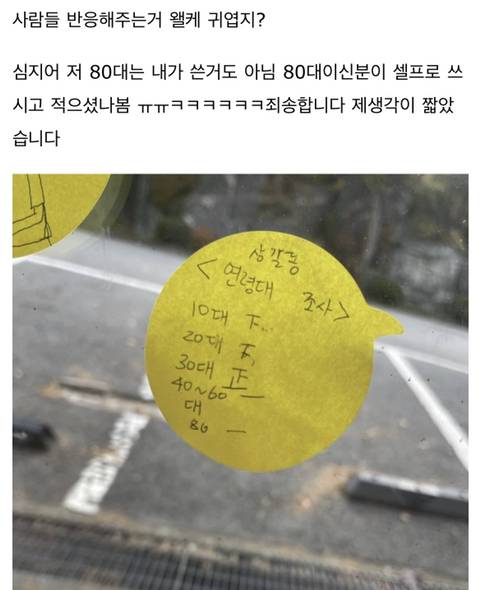 사람들 반응해주는거 왤케 귀엽지?
심지어 저 80대는 내가 쓴거도 아님 80대이신분이 셀프로 쓰
시고 적으셨나봄 ㅠㅠㅋㅋㅋㅋㅋㅋ죄송합니다 제생각이 짧았
습니다
상갈동
< 연령대 조사>
10대 下
20대 下
30대 正
40~60 一
대
80 一